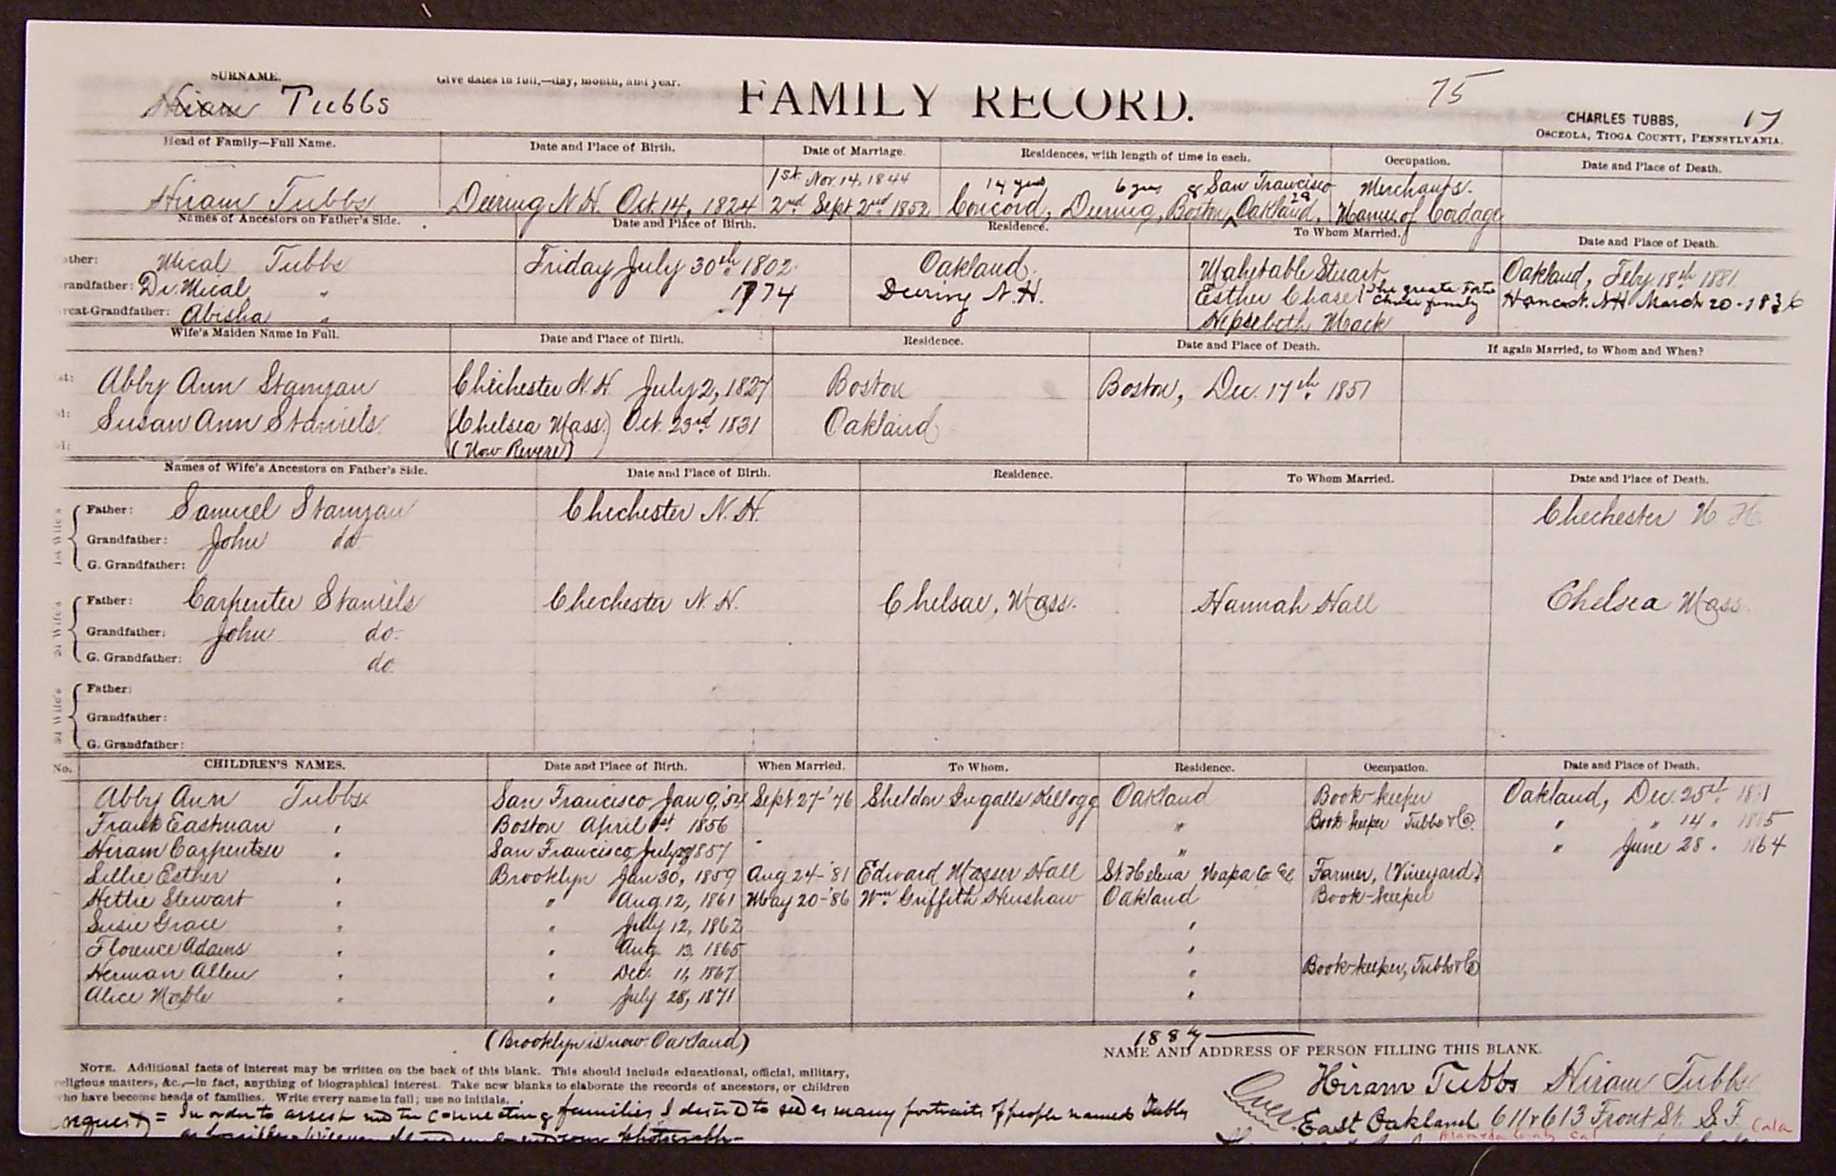 SURNAME.
Give dates in full,—day, month, and year.
FAMILY RECORD.
75
Hiram Tubbs
CHARLES TUBBS,
17
OSCEOLA, TIOGA COUNTY, PENNSYLVANIA.
Head of Family—Full Name. Date and Place of Birth. Date of Marriage. Residences, with length of time in each. Occupation. Date and Place of Death.
1st. Nov. 14, 1844 14 yrs 6 yrs & San Francisco Merchants.
Hiram Tubbs Deering N.H. Oct. 14, 1824 2nd Sept 2nd 1852 Concord, Deering, Boston, Oakland, 29 Manuf of Cordage
Names of Ancestors on Father's Side. Date and Place of Birth. Residence. To Whom Married. Date and Place of Death.
ther: Mical Tubbs Friday July 30th 1802. Oakland. Mahetable Stuart Oakland, Feby 18th 1881
randfather: Dr. Mical " 1774 Deering N.H. Esther Chase Chase family Hancock N.H. March 20-1836
reat-Grandfather: Abisha " Hepsebeth Mack
Wife's Maiden Name in Full. Date and Place of Birth. Residence. Date and Place of Death. If again Married, to Whom and When?
st: Abby Ann Stanyan Chichester N.H. July 2, 1827 Boston Boston, Dec. 17th 1851
d: Susan Ann Staniels. (Chelsea Mass.) Oct. 23rd 1831 Oakland
d: (Now Revere)
Names of Wife's Ancestors on Father's Side. Date and Place of Birth. Residence. To Whom Married. Date and Place of Death.
1st Wife's
Father: Samuel Stanyan Chichester N.H. Chechester N H
Grandfather: John do
G. Grandfather:
2d Wife's
Father: Carpenter Staniels Chechester N.H. Chelsae, Mass. Hannah Hall Chelsea Mass.
Grandfather: John do.
G. Grandfather: do.
3d Wife's
Father:
Grandfather:
G. Grandfather:
No. CHILDREN'S NAMES. Date and Place of Birth. When Married. To Whom. Residence. Occupation. Date and Place of Death.
Abby Ann Tubbs San Francisco Jan 9, '54 Sept 27-'76 Sheldon Ingalls Kellogg Oakland Book-keeper Oakland, Dec. 25th
Frank Eastman " Boston April 1st 1856 " Book keeper Tubbs & Co. " " 14 "
Hiram Carpenter " San Francisco July 1857 " " June 28 " 1864
Lillie Esther " Brooklyn Jan 30, 1859 Aug 24-'81 Edward Hall St. Helena Napa Co Cal Farmer, (Vineyard)
Hettie Stewart " " Aug 12, 1861 May 20-'86 Wm. Griffith Henshaw Oakland Book-keeper
Susie Grace " " July 12, 1862 "
Florence Adams " " Aug 13, 1865 "
Herman Allen " " Dec. 11, 1867 " Book-keeper, Tubbs & Co
Alice Mable " " July 28, 1871 "
(Brooklyn is now Oakland)
1887
NAME AND ADDRESS OF PERSON FILLING THIS BLANK.
NOTE. Additional facts of interest may be written on the back of this blank. This should include educational, official, military,
eligious matters, &c.,—in fact, anything of biographical interest. Take new blanks to elaborate the records of ancestors, or children
ho have become heads of families. Write every name in full; use no initials.
Over.
Hiram Tubbs Hiram Tubbs
East Oakland 611 & 613 Front St. S.F. Cala
Alameda County Cal
request = In order to assist me in connecting families I desire to see as many portraits of people named Tubbs